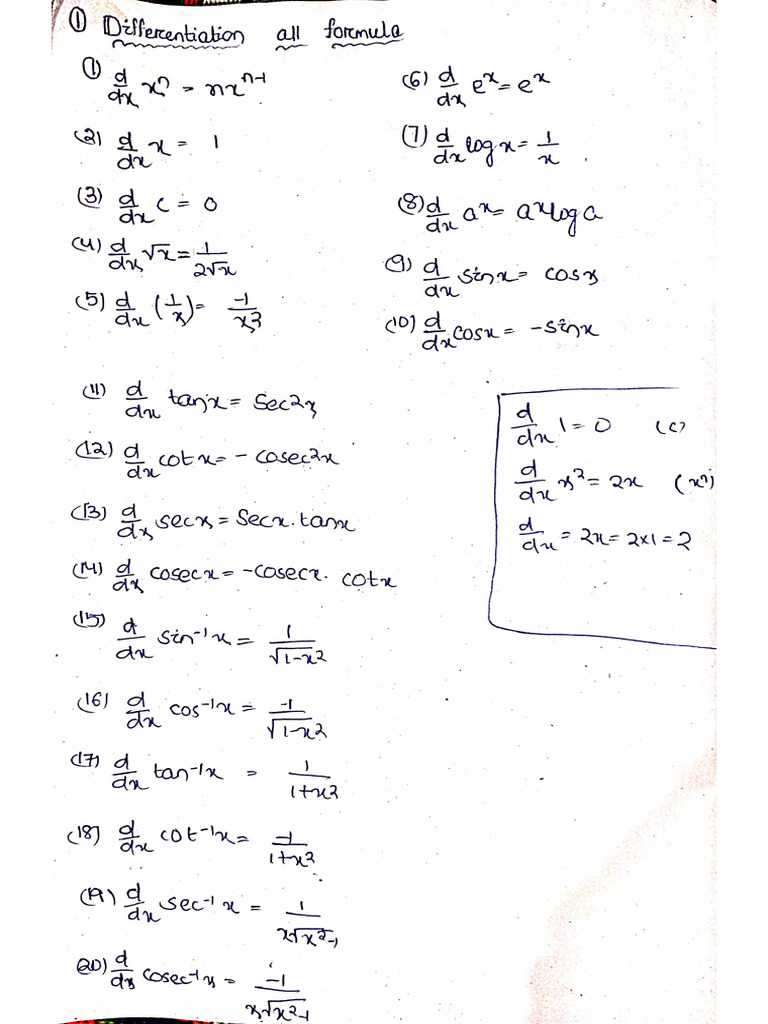 ① Differentiation all formula
(1) d/dx xⁿ = nxⁿ⁻¹
(2) d/dx x = 1
(3) d/dx c = 0
(4) d/dx √x = 1/2√x
(5) d/dx (1/x) = -1/x²
(6) d/dx eˣ = eˣ
(7) d/dx log x = 1/x
(8) d/dx aˣ = aˣ log a
(9) d/dx sinx = cosx
(10) d/dx cosx = -sinx
(11) d/dx tanx = sec²x
(12) d/dx cotx = - cosec²x
(13) d/dx secx = secx.tanx
(14) d/dx cosecx = -cosecx. cotx
(15) d/dx sin⁻¹x = 1/√1-x²
(16) d/dx cos⁻¹x = -1/√1-x²
(17) d/dx tan⁻¹x = 1/1+x²
(18) d/dx cot⁻¹x = -1/1+x²
(19) d/dx sec⁻¹x = 1/x√x²-1
(20) d/dx cosec⁻¹x = -1/x√x²-1
d/dx 1 = 0 (c)
d/dx x² = 2x (xⁿ)
d/dx = 2x = 2×1 = 2